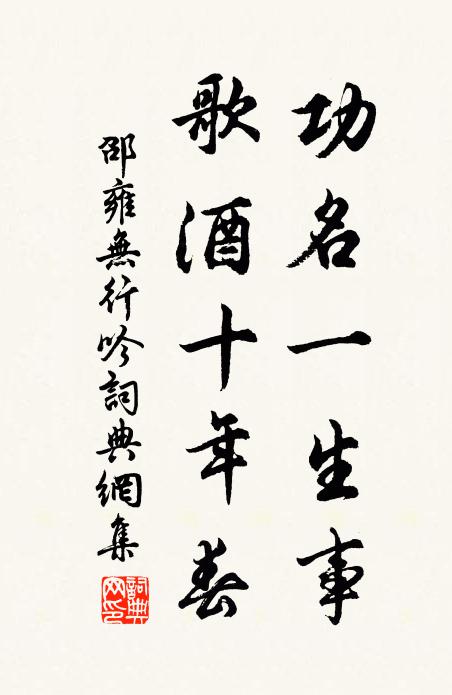 功名一生事
歌酒十年春
邵雍無行吟詞典網集
詞典網印